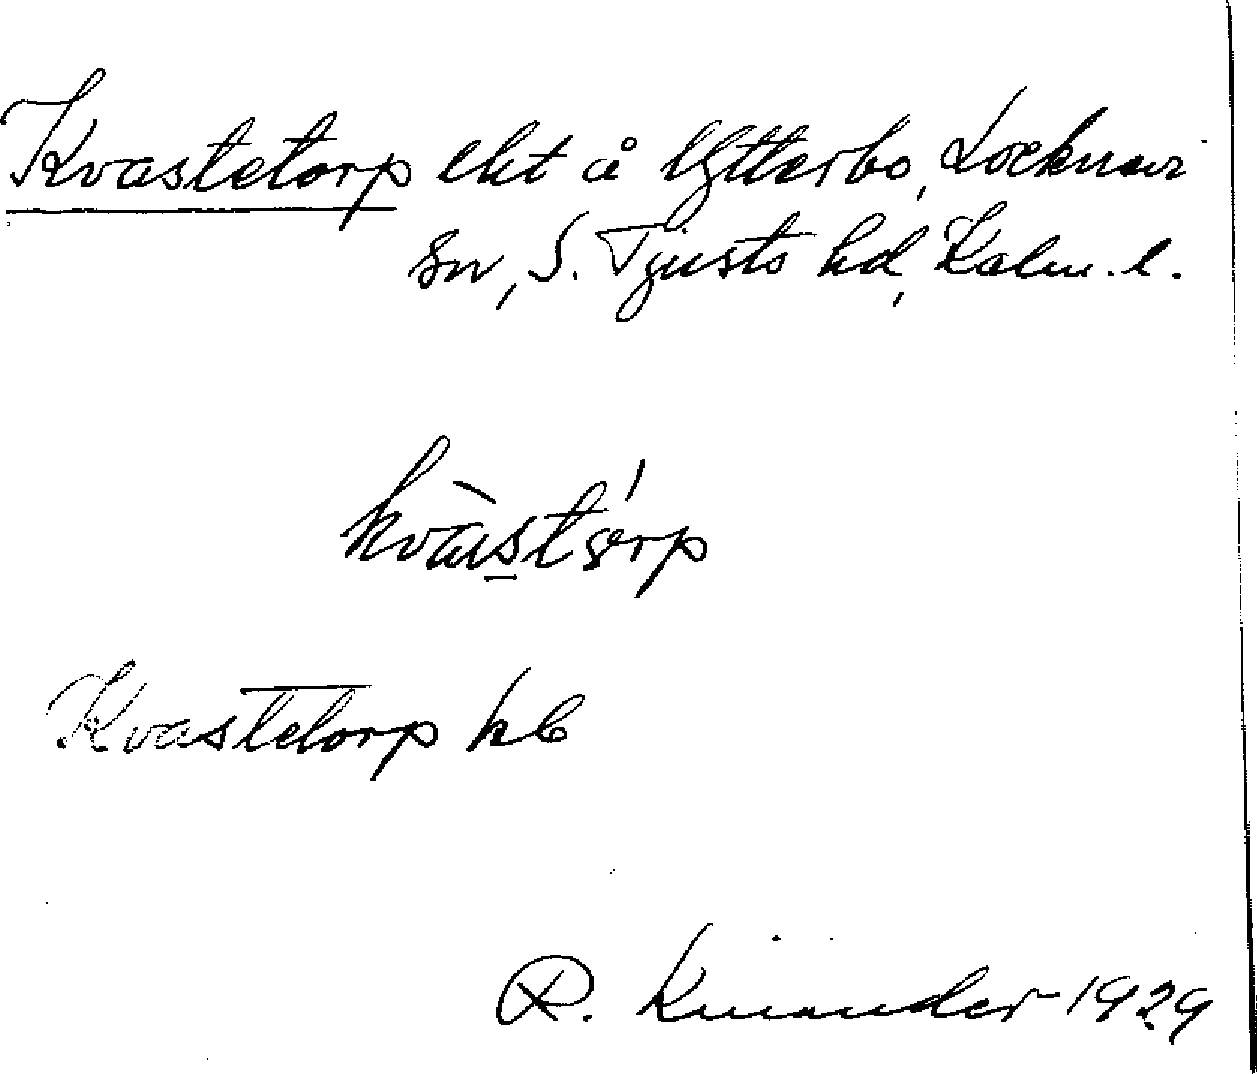 Kvastetorp lht å Ytterbo, Locknevi
sn, S. Tjusts hd, Kalm. l.
Kvastetorp kb
R. Kinander 1929